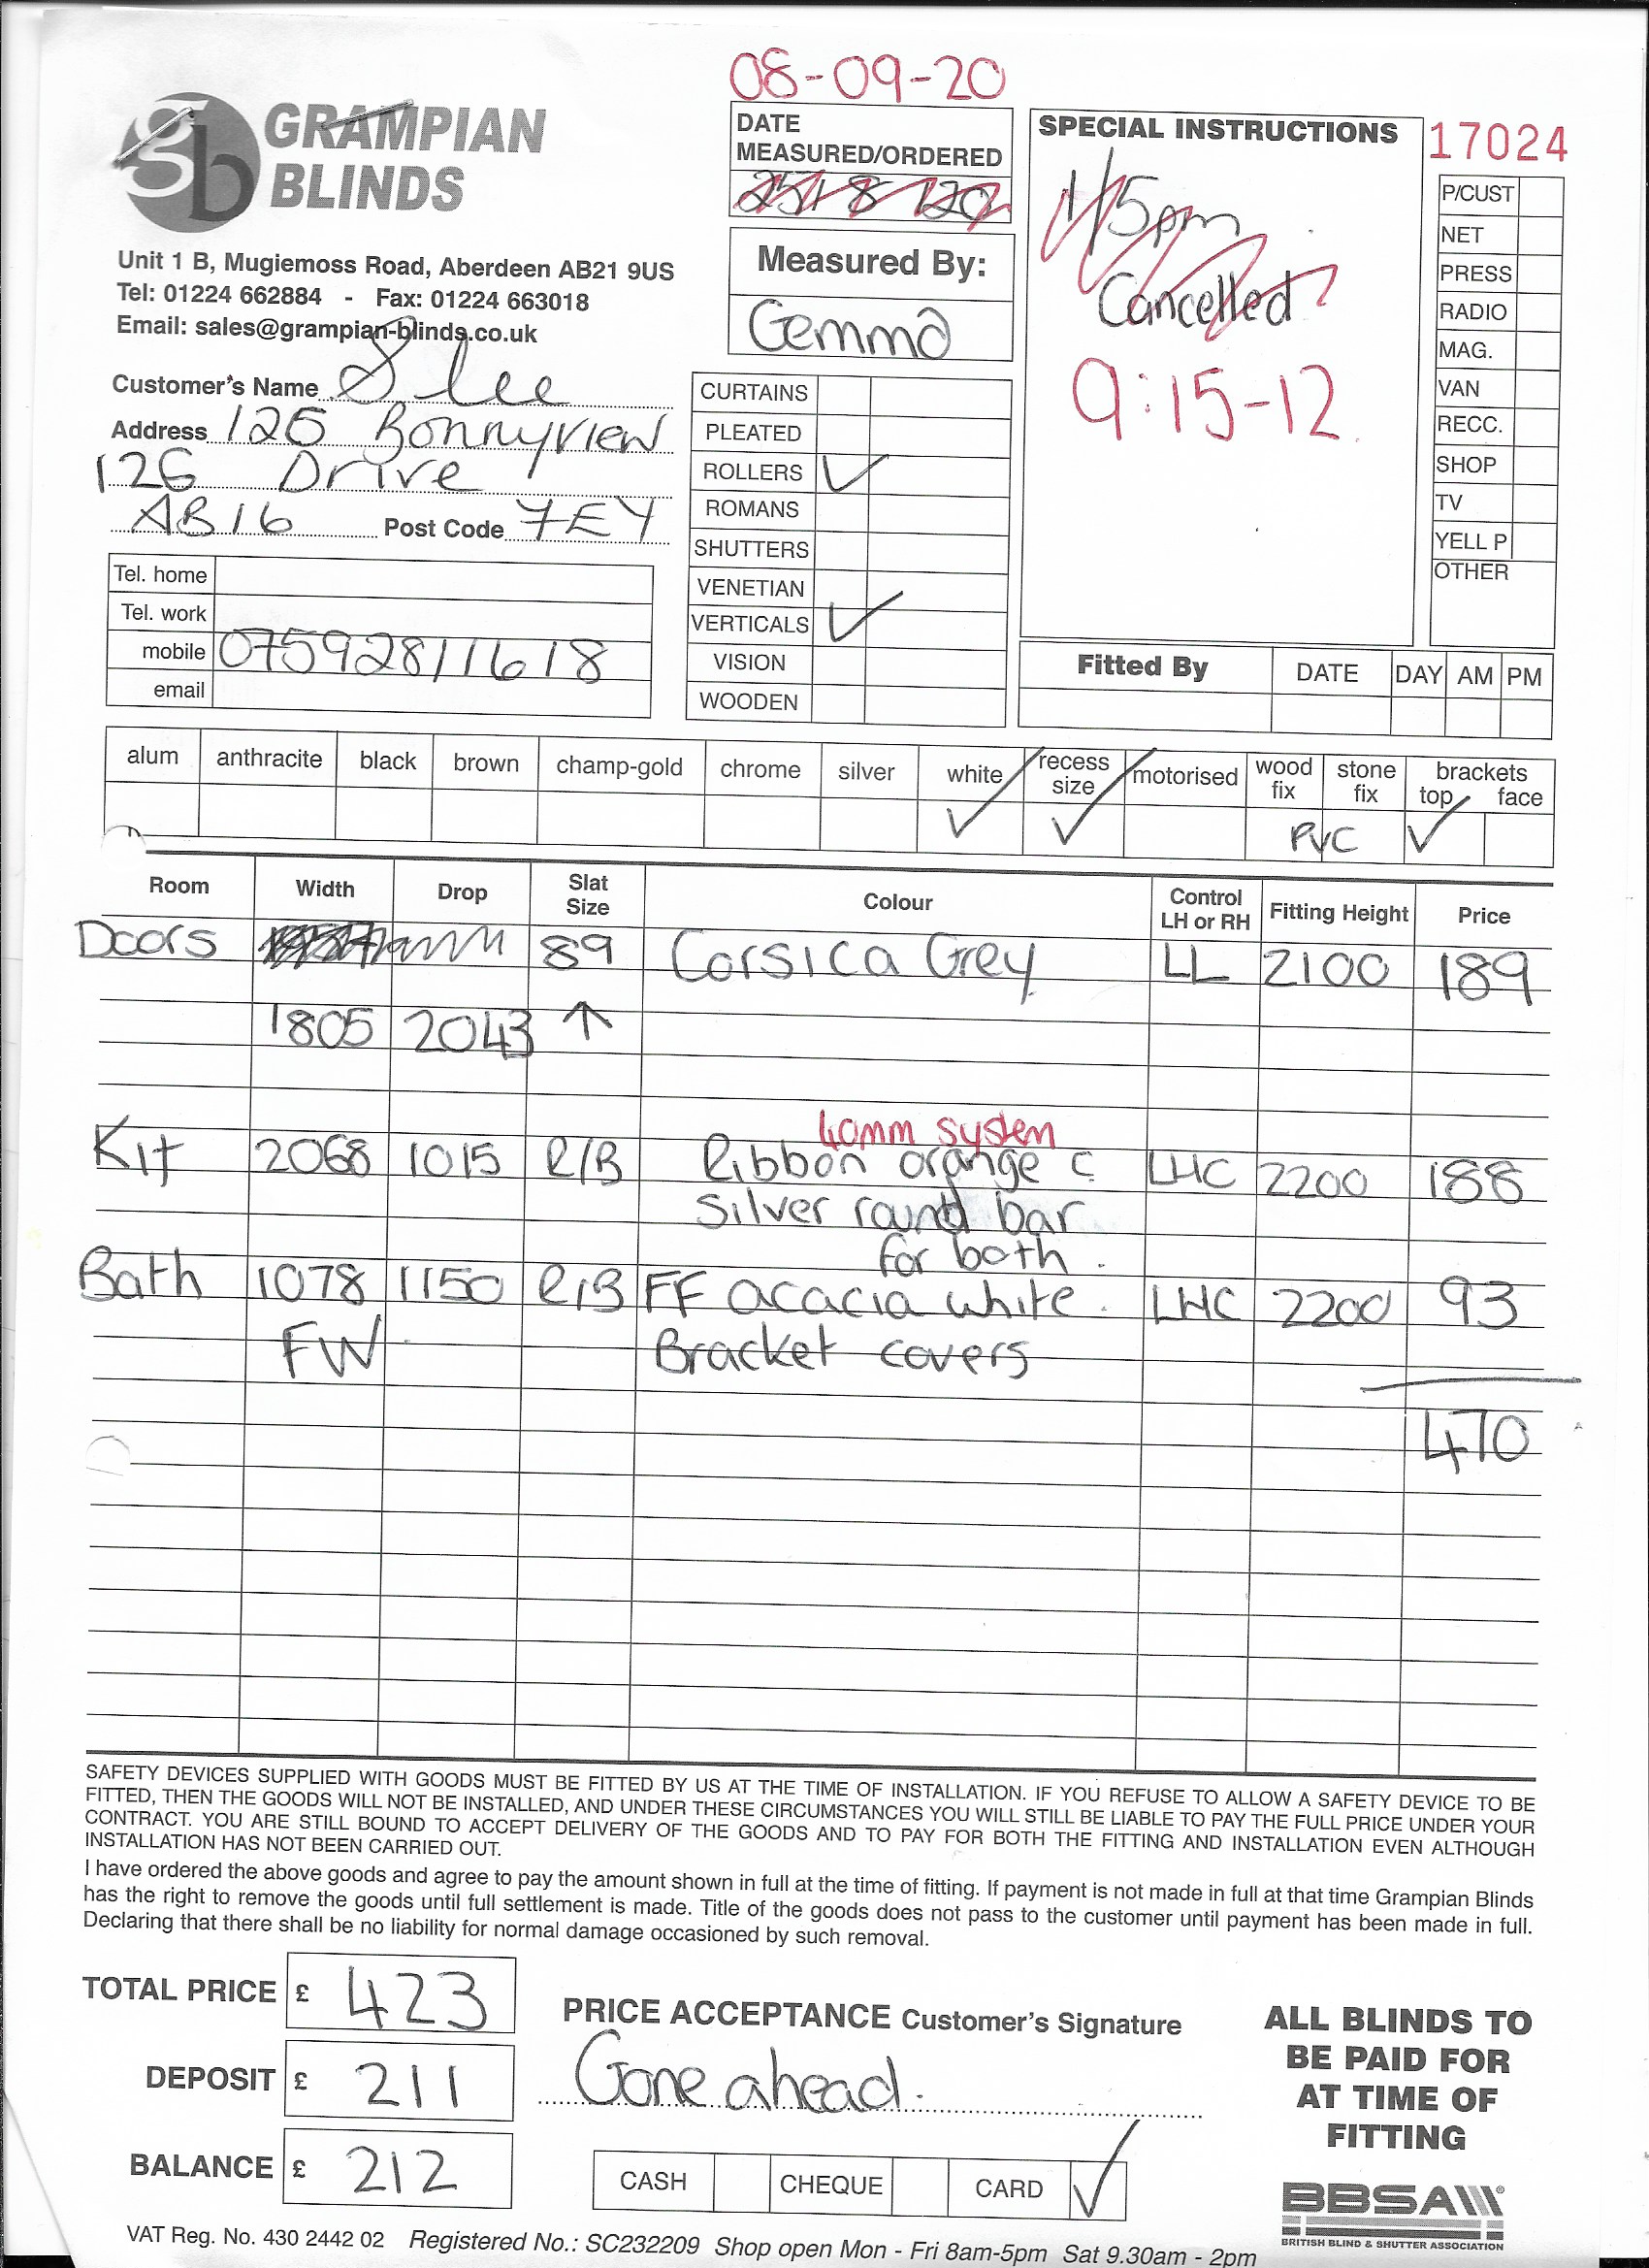 08-09-20
GRAMPIAN
BLINDS
gb
Unit 1 B, Mugiemoss Road, Aberdeen AB21 9US
Tel: 01224 662884 - Fax: 01224 663018
Email: sales@grampian-blinds.co.uk
Customer's Name S Lee
Address 125 Bonnyview
126 Drive
AB16 Post Code 7EY
Tel. home
Tel. work
mobile 07592811618
email
DATE
MEASURED/ORDERED
25/8/20
Measured By:
Gemma
CURTAINS
PLEATED
ROLLERS ✓
ROMANS
SHUTTERS
VENETIAN
VERTICALS ✓
VISION
WOODEN
SPECIAL INSTRUCTIONS
5pm
Cancelled
9:15-12
17024
P/CUST
NET
PRESS
RADIO
MAG.
VAN
RECC.
SHOP
TV
YELL P
OTHER
Fitted By DATE DAY AM PM
alum anthracite black brown champ-gold chrome silver white recess size motorised wood fix stone fix brackets top face
✓ ✓ PVC ✓
Room Width Drop Slat Size Colour Control LH or RH Fitting Height Price
Doors 89 Corsica Grey LL 2100 189
1805 2043 ↑
40mm system
Kit 2068 1015 R/B Ribbon orange c LHC 2200 188
Silver round bar
for both.
Bath 1078 1150 R/B FF acacia white. LHC 2200 93
FW Bracket covers
470
SAFETY DEVICES SUPPLIED WITH GOODS MUST BE FITTED BY US AT THE TIME OF INSTALLATION. IF YOU REFUSE TO ALLOW A SAFETY DEVICE TO BE
FITTED, THEN THE GOODS WILL NOT BE INSTALLED, AND UNDER THESE CIRCUMSTANCES YOU WILL STILL BE LIABLE TO PAY THE FULL PRICE UNDER YOUR
CONTRACT. YOU ARE STILL BOUND TO ACCEPT DELIVERY OF THE GOODS AND TO PAY FOR BOTH THE FITTING AND INSTALLATION EVEN ALTHOUGH
INSTALLATION HAS NOT BEEN CARRIED OUT.
I have ordered the above goods and agree to pay the amount shown in full at the time of fitting. If payment is not made in full at that time Grampian Blinds
has the right to remove the goods until full settlement is made. Title of the goods does not pass to the customer until payment has been made in full.
Declaring that there shall be no liability for normal damage occasioned by such removal.
TOTAL PRICE £ 423
DEPOSIT £ 211
BALANCE £ 212
PRICE ACCEPTANCE Customer's Signature
Gone ahead.
CASH CHEQUE CARD ✓
ALL BLINDS TO
BE PAID FOR
AT TIME OF
FITTING
BBSA
BRITISH BLIND & SHUTTER ASSOCIATION
VAT Reg. No. 430 2442 02 Registered No.: SC232209 Shop open Mon - Fri 8am-5pm Sat 9.30am - 2pm